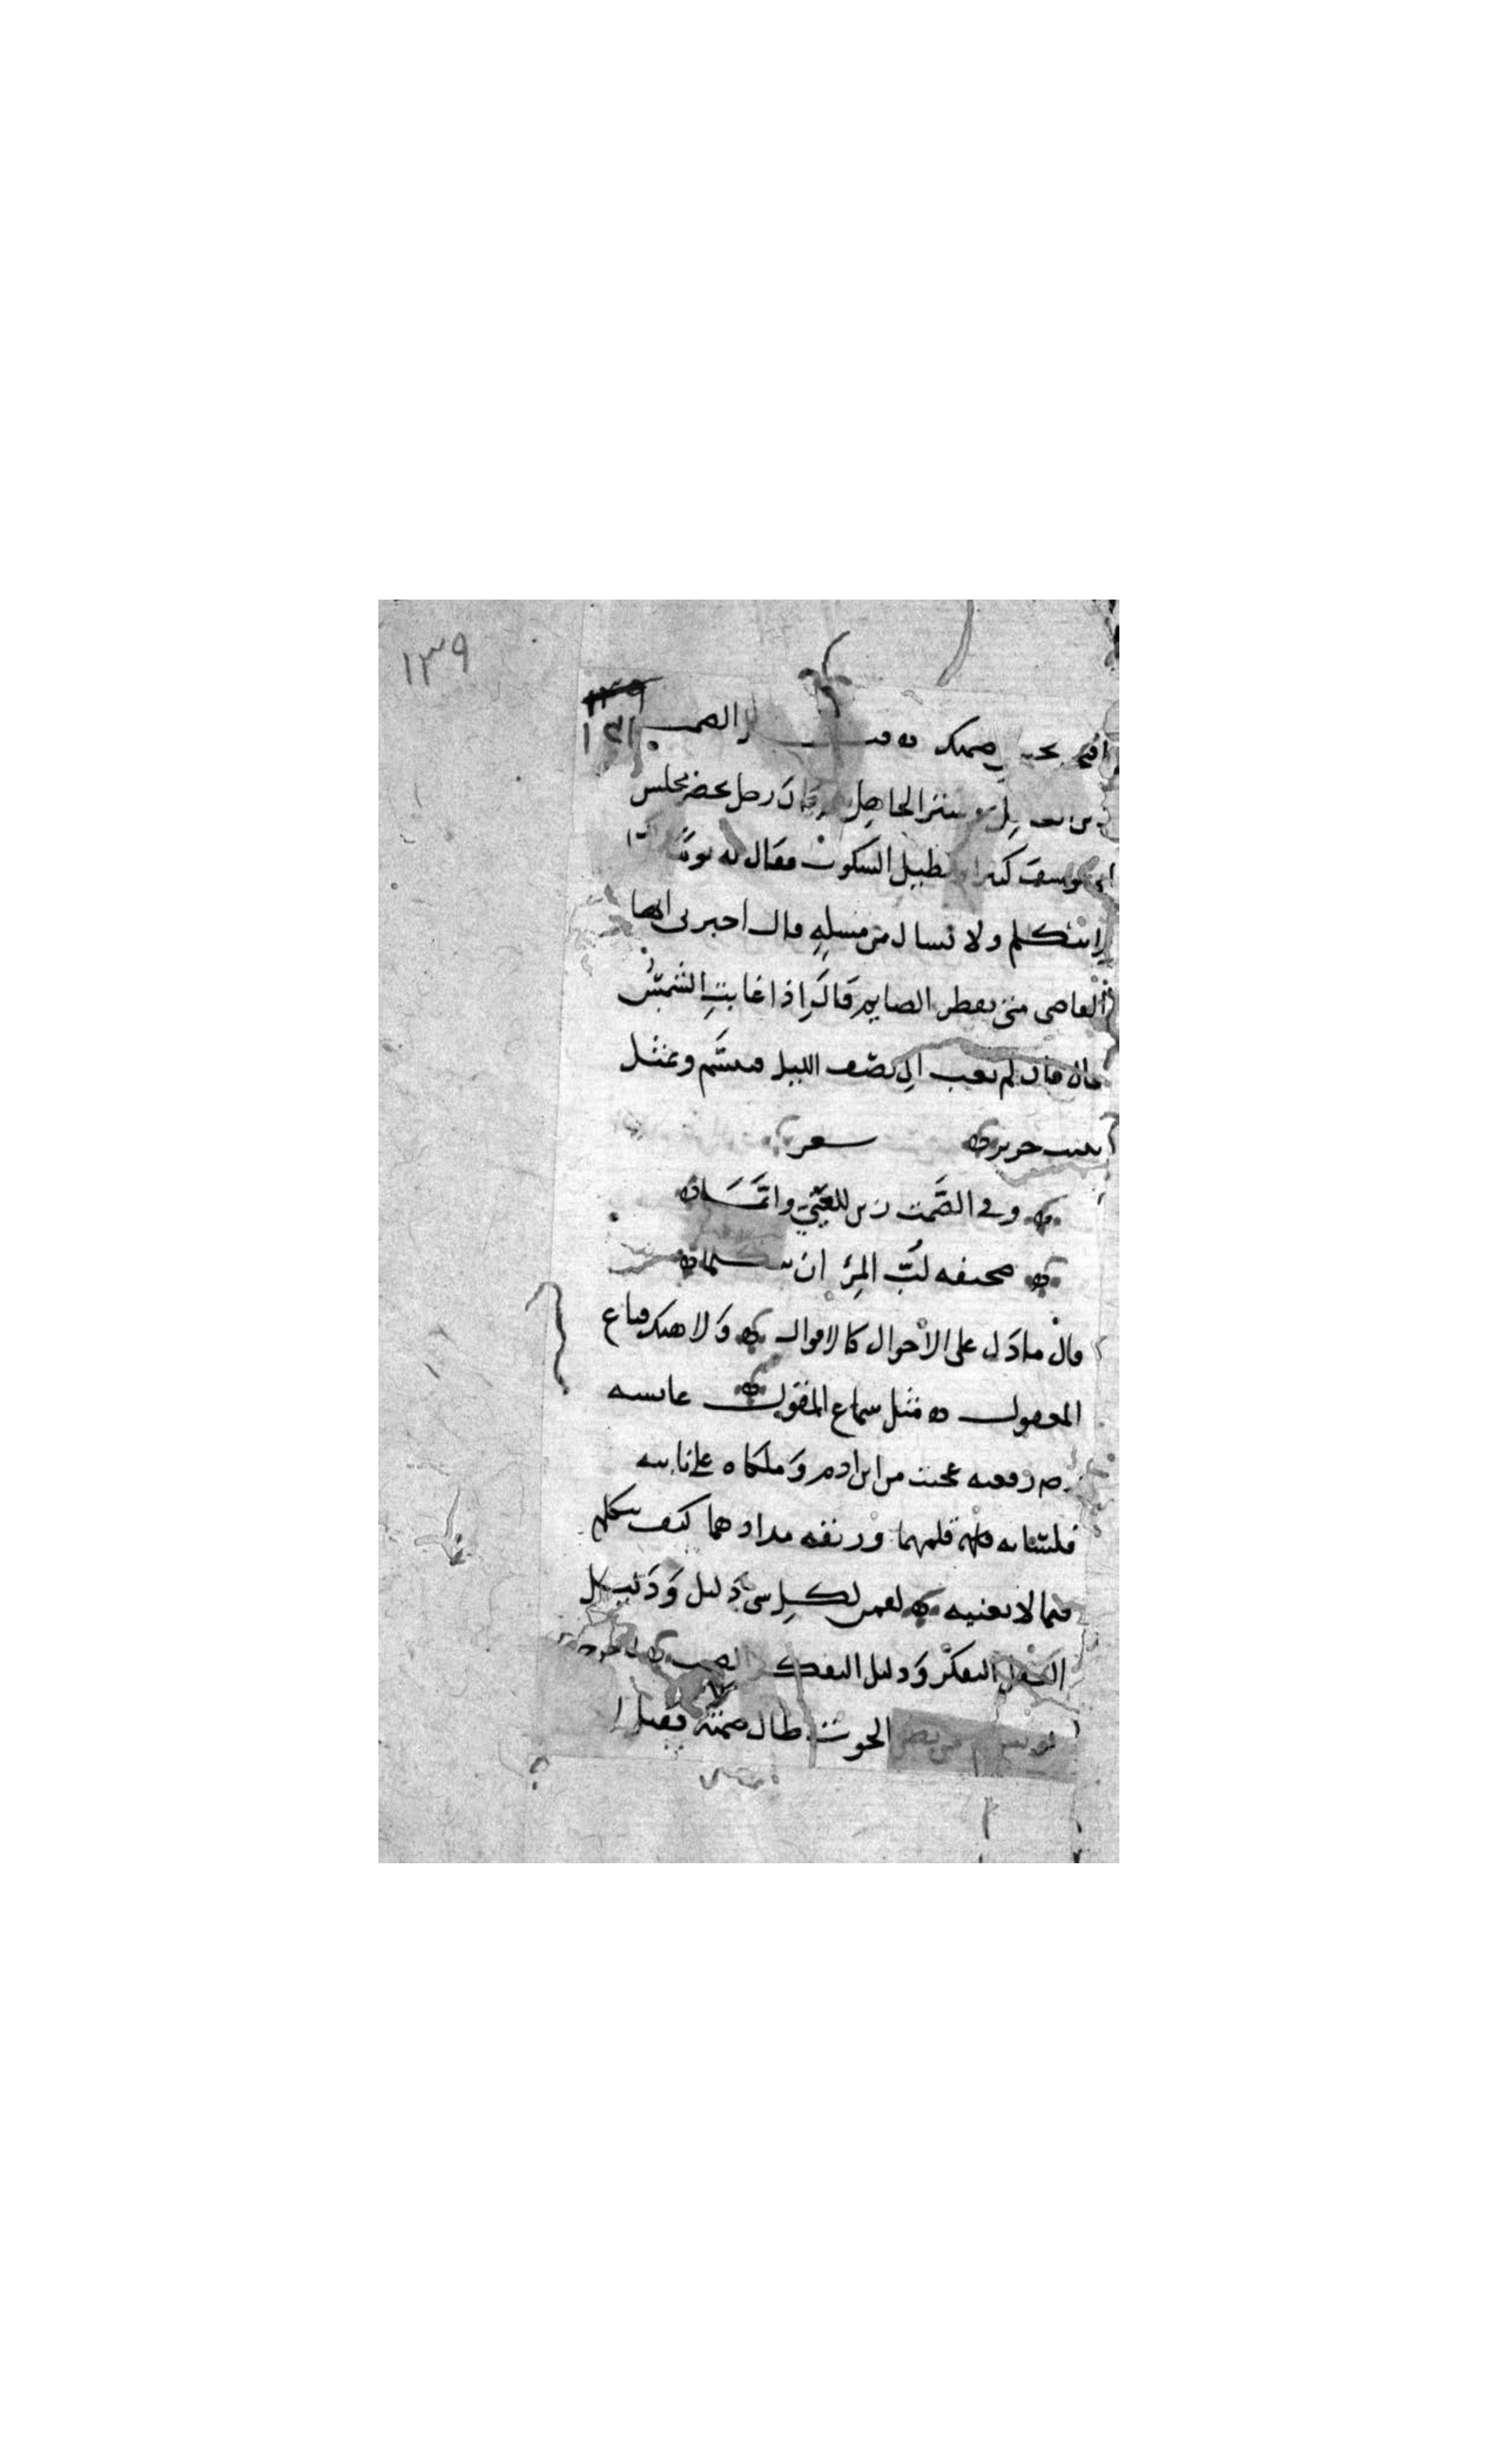 ١٣٩
١٤١
صمتك الصمت
ستر الجاهل وكان رجل يحضر مجلس
ابي يوسف كثيرا يطيل السكوت فقال له يوما
تتكلم ولا تسال عن مسله قال اخبرني ايها
القاضي متى يفطر الصايم قال اذا غابت الشمس
قال فان لم تغب الى نصف الليل فتبسم وتمثل
ببيت جرير شعر
وفي الصمت زين للغبي وانما
صحيفه لب المرء ان يتكلما
قال ما دل على الاحوال كالاقوال ولا هتك قناع
العقول مثل سماع المقول عايشه
رفعته عجبت من ابن ادم وملكاه على نابيه
فلسانه قلمهما وريقه مدادهما كيف يتكلم
فيما لا يعنيه لقمن لكل شي دليل ودليل
العقل التفكر ودليل التفكر الصمت
يونس بطن الحوت طال صمته فقيل